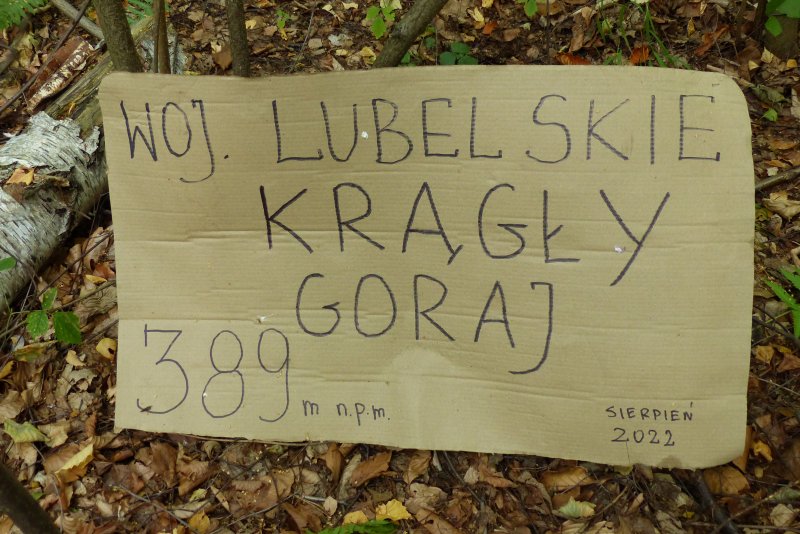 WOJ. LUBELSKIE
KRĄGŁY
GORAJ
389 m n.p.m.
SIERPIEŃ
2022